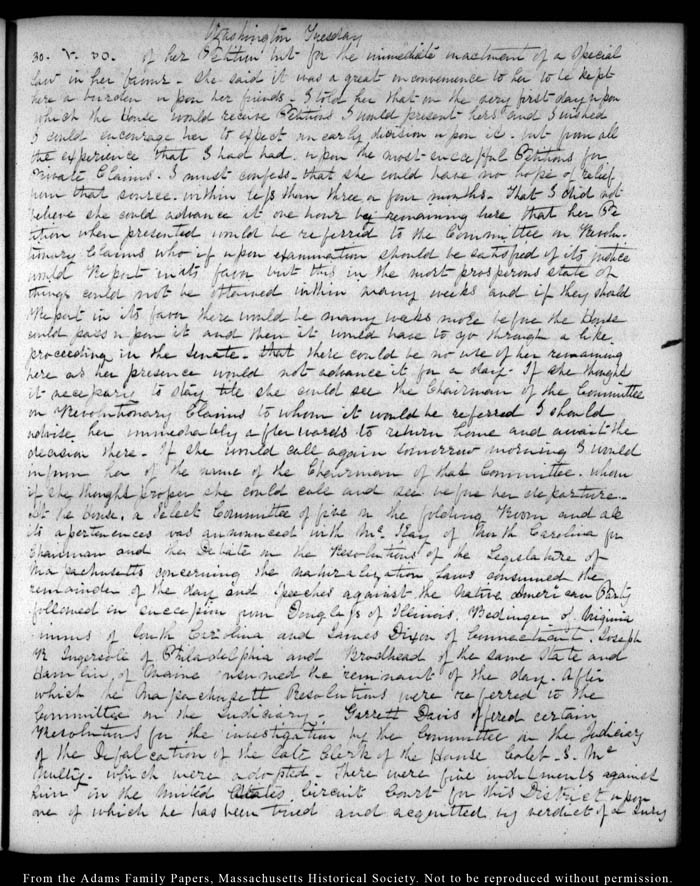 Washington Tuesday
30. V. 30. of her Petition but for the immediate enactment of a special
law in her favour - She said it was a great inconvenience to her to be kept
here a burden upon her friends - I told her that on the very first day upon
which the House would receive Petitions I would present hers and I wished
I could encourage her to expect an early decision upon it - but from all
the experience that I had had upon the most successful Petitions for
Private Claims - I must confess that she could have no hope of relief
from that source within less than three or four months - That I did not
believe she could advance it one hour by remaining here that her Pe
tition when presented would be referred to the Committee on Revolu-
tionary Claims who if upon examination should be satisfied of its justice
would Report in its favor but this in the most prosperous state of
things could not be obtained within many weeks and if they should
Report in its favor there would be many weeks more before the House
could pass upon it and then it would have to go through a like
proceeding in the Senate - that there could be no use of her remaining
here as her presence would not advance it for a day - If she thought
it necessary to stay till she could see the Chairman of the Committee
on Revolutionary Claims to whom it would be referred I should
advise her immediately afterwards to return home and await the
decision there - If she would call again tomorrow morning I would
inform her of the name of the Chairman of that Committee - whom
if she thought proper she could call and see before her departure -
At the House, a Select Committee of five on the folding Room and all
its apertenences was announced with Mr. Reay of North Carolina for
Chairman and the Debate on the Resolutions of the Legislature of
Massachusetts concerning the naturalization Laws consumed the
remainder of the day and Speeches against the Native American Party
followed in succession from Douglass of Illinois, Bedinger of Virginia
Simms of South Carolina and James Dixon of Connecticut. Joseph
R Ingersole of Philadelphia and Brodhead of the same State and
Hamlin of Maine consumed the remnant of the day - After
which the Massachusetts Resolutions were referred to the
Committee on the Judiciary. Garrett Davis offered certain
Resolutions for the investigation by the Committee on the Judiciary
of the Defalcation of the late Clerk of the House Calet - S. Mc
Nulty - which were adopted - There were five indictments against
him in the United States Circuit Court for this District upon
one of which he has been tried and acquitted by verdict of a Jury
From the Adams Family Papers, Massachusetts Historical Society. Not to be reproduced without permission.